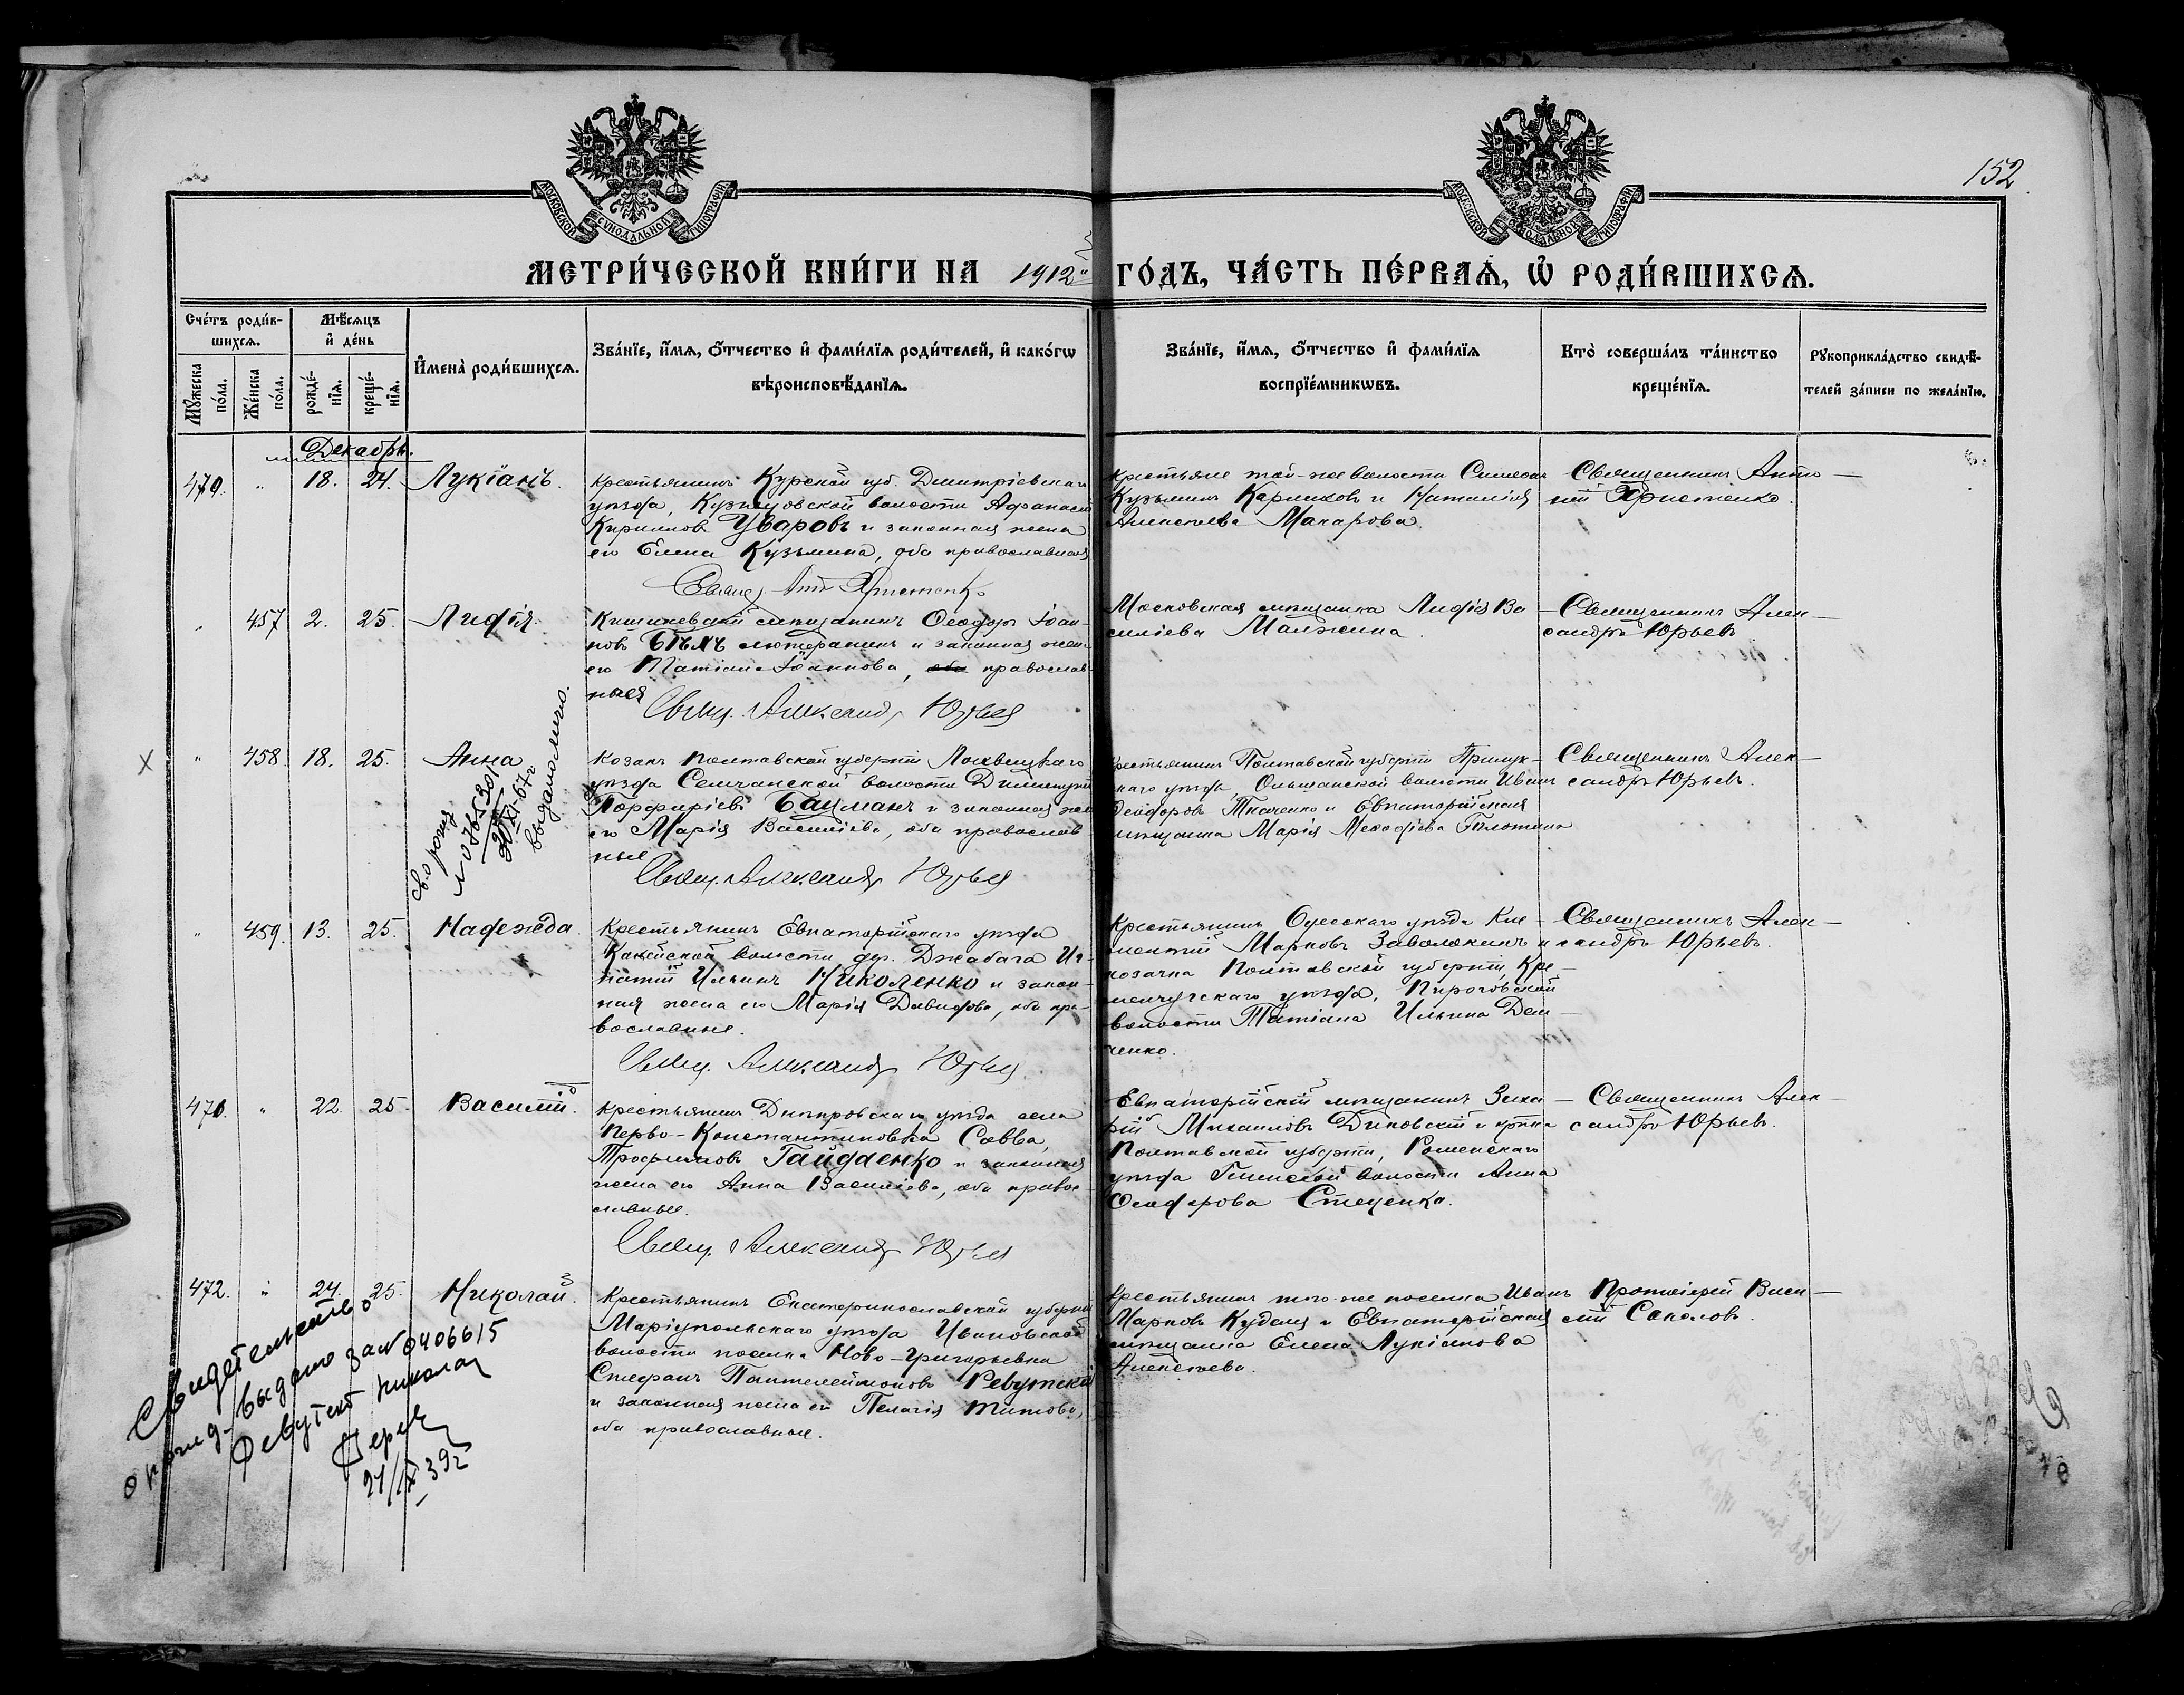 МОСКОВСКОЙ СУНОДАЛЬНОЙ ТИПОГРАФИИ
МОСКОВСКОЙ СУНОДАЛЬНОЙ ТИПОГРАФИИ
152
МЕТРИ́ЧЕСКОЙ КНИ́ГИ НА 1912й ГО́ДЪ, ЧА́СТЬ ПЕ́РВАѦ, Ѡ҆ РОДИ́ВШИХСѦ.
Сче́тъ роди́в-
шихсѧ.
Мꙋ́жеска по́ла.
Же́нска по́ла.
Мѣ́сѧцъ
и҆ де́нь
рожде́-
нїѧ.
креще́-
нїѧ.
И҆мена̀ роди́вшихсѧ.
Зва́нїе, и҆́мѧ, ѻ҆́тчество и҆ фами́лїѧ роди́телей, и҆ како́гѡ
вѣроисповѣ́данїѧ.
Зва́нїе, и҆́мѧ, ѻ҆́тчество и҆ фами́лїѧ
воспрїе́мникѡвъ.
Кто̀ соверша́лъ та́инство
креще́нїѧ.
Рꙋкоприкла́дство свидѣ́-
телей за́писи по жела́нїю.
Декабрь.
470. " 18. 24. Лукіанъ.
Крестьянинъ Курской губ. Дмитріевскаго
уѣзда, волости Афанасій
Кириловъ Уваровъ и законная жена
его Елена Кузьмина, оба православные
Свящ. Ант. Христенко
крестьяне той-же волости Симеонъ
Кузьминъ Карликовъ и Наталія
Алексѣева Макарова.
Священникъ Анто-
ній Христенко.
" 457 2. 25. Лидія.
Кишиневскій мѣщанинъ Ѳеодоръ Іоан-
новъ Бѣлъ лютеранинъ и законная жена
его Татіана Іоаннова, оба православ-
ная
Свящ. Александр Юрьев
Московская мѣщанка Лидія Ва-
силіева Малжина.
Священникъ Алек-
сандръ Юрьевъ
Х " 458. 18. 25. Анна
св. о рожд
20/XI-67г
выдано
Козакъ Полтавской губерніи Лохвицкаго
уѣзда Сенчанской волости Димитрій
Порфиріевъ Бацманъ и законная жена
его Марія Василіева, оба православ-
ные
Свящ. Александр Юрьев
Крестьянинъ Полтавской губерніи Прилук-
каго уѣзда, Ольшанской волости Иванъ
Ѳеодоровъ Ткаченко и Евпаторійская
мѣщанка Марія Меѳодіева
Священникъ Алек-
сандръ Юрьевъ.
" 459. 13. 25. Надежда.
Крестьянинъ Евпаторійскаго уѣзда
волости дер. Джабага Иг-
натій Ильинъ Николенко и закон-
ная жена его Марія Давидова, оба пра-
вославные.
Свящ. Александр Юрьев
Крестьянинъ Одесскаго уѣзда Кли-
ментій Марковъ Заволокинъ и
козачка Полтавской губерніи, Кре-
менчугскаго уѣзда, Пироговской
волости Татіана Ильина Дем-
ченко.
Священникъ Алек-
сандръ Юрьевъ.
471. " 22. 25. Василій.
Крестьянинъ Днѣпровскаго уѣзда села
Перво-Константиновка Савва
Трофимовъ Гайдаенко и законная
жена его Анна Василіева, оба право-
славные.
Свящ. Александр Юрьев
Евпаторійскій мѣщанинъ Заха-
рій Михаиловъ Диковскій и крт-ка
Полтавской губерніи, Роменскаго
уѣзда волости Анна
Ѳеодорова Стеценко.
Священникъ Алек-
сандръ Юрьевъ.
472. " 24. 25. Николай.
Свидетельство
о рожд. выдано за № 0406615
Ревутский Николай
21/IX 39г
Крестьянинъ Екатеринославской губерніи
Маріупольскаго уѣзда Ивановской
волости поселка Ново-Григорьевка
Стефанъ Пантелеймоновъ Ревутскій
и законная жена его Пелагія Титова,
оба православные.
Крестьянинъ того-же поселка Иванъ
Марковъ и Евпаторійская
мѣщанка Елена Лукіанова
Алексѣева.
Протоіерей Васи-
лій Соколовъ.